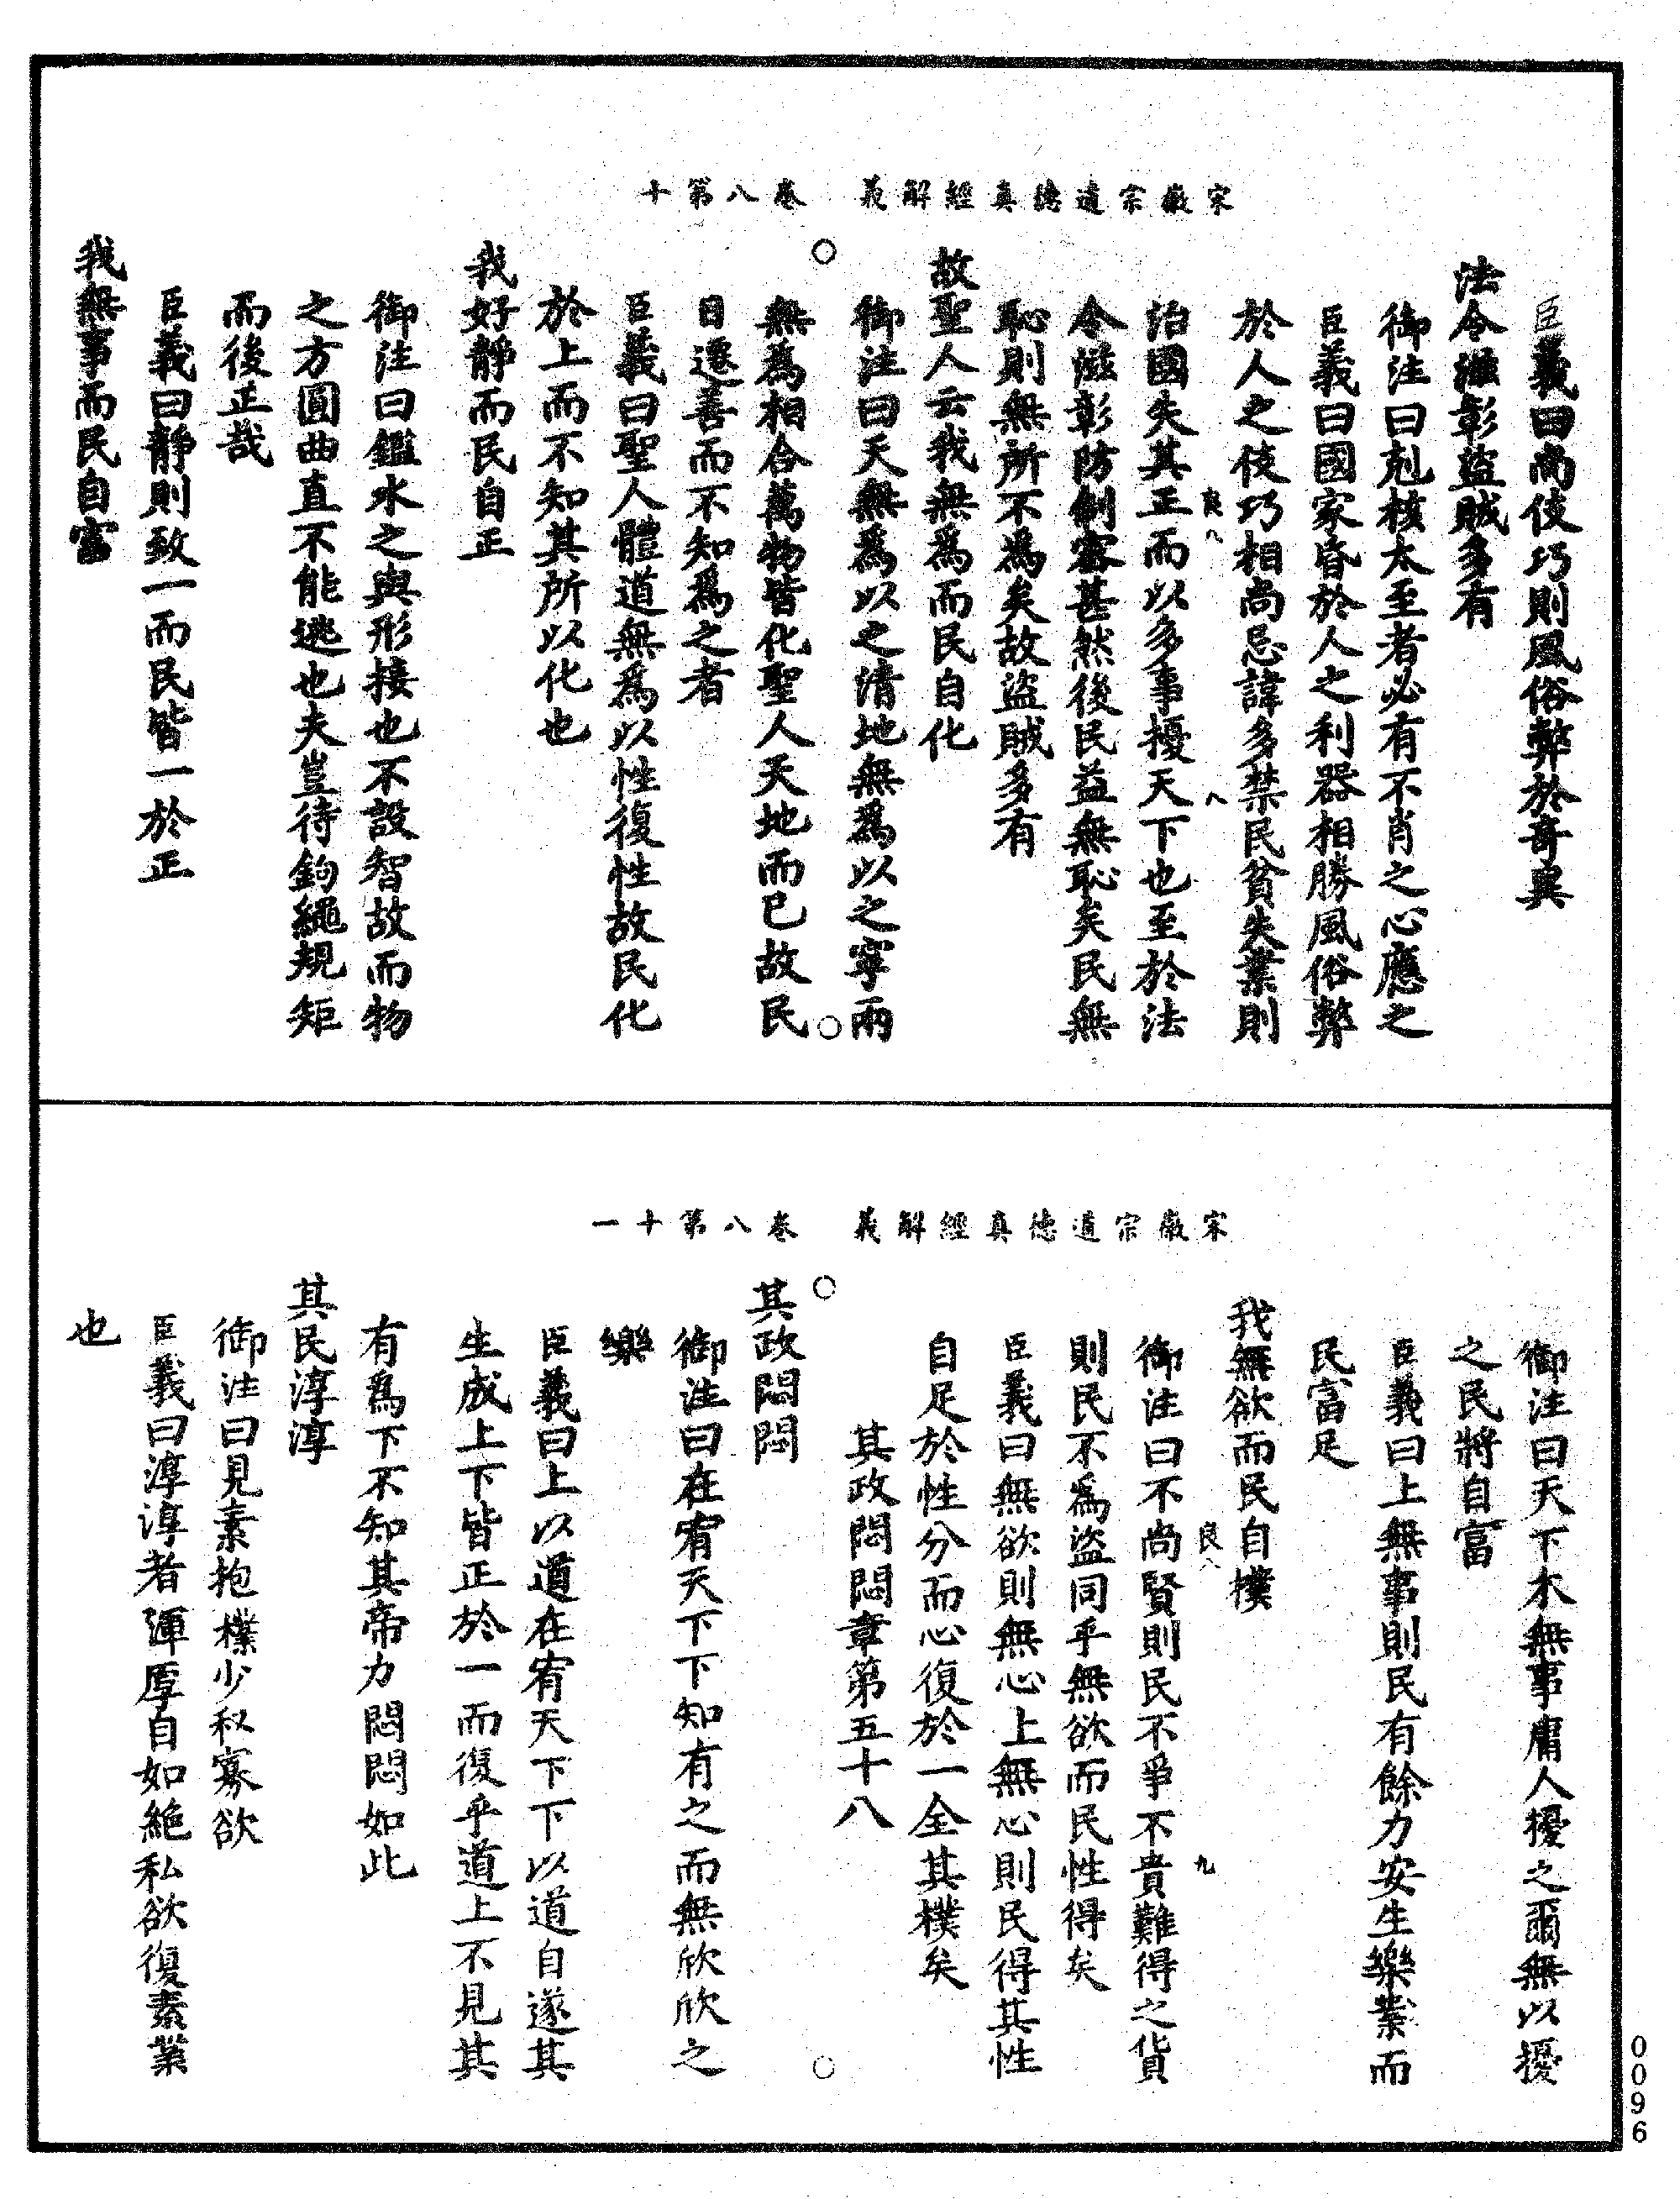 宋徽宗道德真經解義　卷八第十
臣義曰尚伎巧則風俗弊於奇異
法令滋彰盜賊多有
御注曰剋核太至者必有不肖之心應之
臣義曰國家昏於人之利器相勝風俗弊
於人之伎巧相尚忌諱多禁民貧失業則
良八　八
治國失其正而以多事擾天下也至於法
令滋彰防制密甚然後民益無恥矣民無
恥則無所不為矣故盜賊多有
故聖人云我無為而民自化
御注曰天無為以之清地無為以之寧兩
無為相合萬物皆化聖人天地而已故民
日遷善而不知為之者
臣義曰聖人體道無為以性復性故民化
於上而不知其所以化也
我好靜而民自正
御注曰鑑水之與形接也不設智故而物
之方圓曲直不能逃也夫豈待鉤繩規矩
而後正哉
臣義曰靜則致一而民皆一於正
我無事而民自富
宋徽宗道德真經解義　卷八第十一
御注曰天下本無事庸人擾之爾無以擾
之民將自富
臣義曰上無事則民有餘力安生樂業而
民富足
我無欲而民自樸
良八　九
御注曰不尚賢則民不爭不貴難得之貨
則民不為盜同乎無欲而民性得矣
臣義曰無欲則無心上無心則民得其性
自足於性分而心復於一全其樸矣
其政悶悶章第五十八
其政悶悶
御注曰在宥天下下知有之而無欣欣之
樂
臣義曰上以道在宥天下下以道自遂其
生成上下皆正於一而復乎道上不見其
有為下不知其帝力悶悶如此
其民淳淳
御注曰見素抱樸少私寡欲
臣義曰淳淳者渾厚自如絕私欲復素業
也
0096